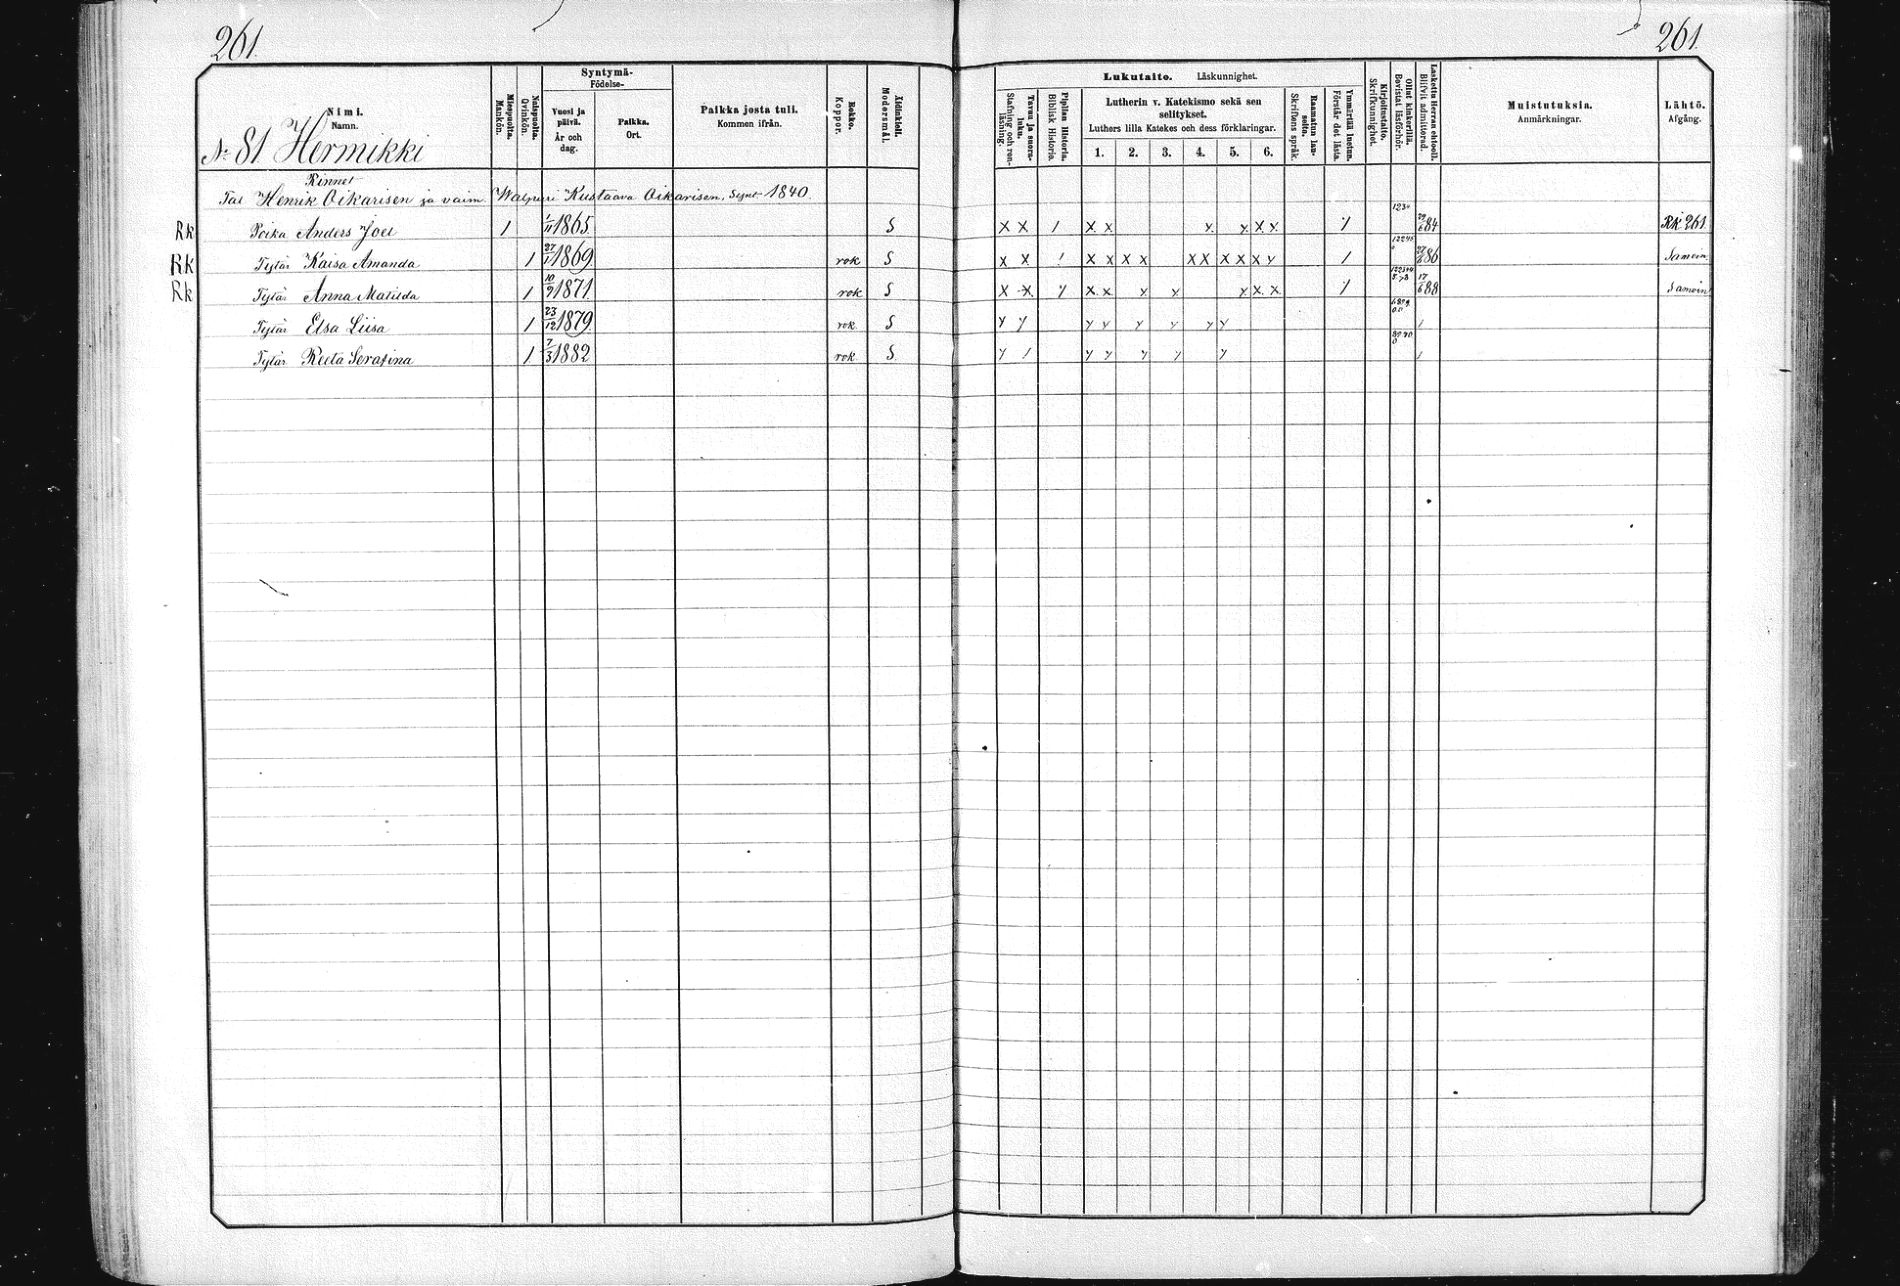 261.
261.
Nimi.
Namn.
Miespuolta.
Mankön.
Naispuolta.
Qvinkön.
Syntymä-
Födelse-
Vuosi ja päivä.
År och dag.
Paikka.
Ort.
Paikka josta tuli.
Kommen ifrån.
Rokko.
Koppor.
Äidinkieli.
Modersmål.
Lukutaito. Läskunnighet.
Tavuu ja suora-luku.
Stafning och ren-läsning.
Piplian Historia.
Biblisk Historia.
Lutherin v. Katekismo sekä sen selitykset.
Luthers lilla Katekes och dess förklaringar.
1. 2. 3. 4. 5. 6.
Raamatun lau-seita.
Skriftens språk.
Ymmärtää luetun.
Förstår det lästa.
Kirjoitustaito.
Skrifkunnighet.
Ollut kinkerillä.
Bevistat läsförhör.
Laskettu Herran ehtooll.
Blifvit admitterad.
Muistutuksia.
Anmärkningar.
Lähtö.
Afgång.
No 81 Hermikki
Rinnet
Tal Henrik Oikarisen ja vaim. Walpuri Kustaava Oikarisen, Synt 1840.
Rk Poika Anders Joel 1 1/11 1865. S X X 1 X X y. y. X. y. 1 1234 29/6 84 Rk 261
Rk Tytär Kaisa Amanda 1 27/1 1869 rok S X X 1 X X X X X X X X X y 1 27/6 86 Samoin
Rk Tytär Anna Matilda 1 10/9 1871. rok S X X y X X y y y X X 1 17/6 88 Samoin
Tytär Elsa Liisa 1 23/12 1879. rok S y y y y y y y y 1
Tytär Reeta Serafina 1 7/3 1882 rok S. y 1 y y y y y 1